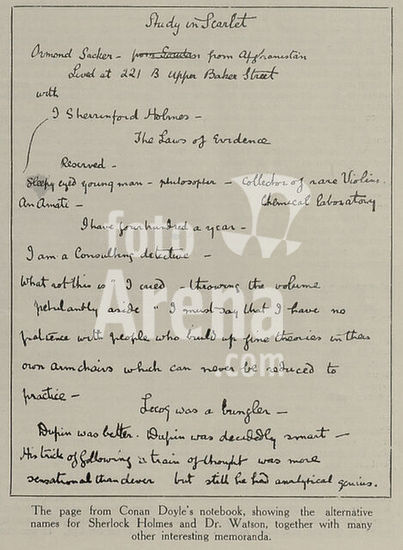 Study in Scarlet
Ormond Sacker - from Soudan from Afghanistan
Lived at 221 B Upper Baker Street
with
I Sherrinford Holmes -
The Laws of Evidence
Reserved -
Sleepy eyed young man - philosopher - Collector of rare Violins
An Amati - Chemical laboratory
I have four hundred a year -
I am a Consulting detective -
What rot this is" I cried - throwing the volume
petulantly aside " I must say that I have no
patience with people who build up fine theories in their
own armchairs which can never be reduced to
practice -
Lecoq was a bungler -
Dupin was better. Dupin was decidedly smart -
His trick of following a train of thought was more
sensational than clever but still he had analytical genius.
foto
Arena
.com
The page from Conan Doyle's notebook, showing the alternative
names for Sherlock Holmes and Dr. Watson, together with many
other interesting memoranda.